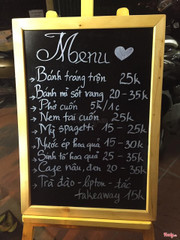 Menu
→ Bánh tráng trộn 25k
→ Bánh mì sốt vang 20 - 35k
→ Phở cuốn 5k/1c
→ Nem tai cuốn 25k
→ Mỳ spagetti 15 - 25k
→ Nước ép hoa quả 15 - 30k
→ Sinh tố hoa quả 25 - 35k
→ Cafe nâu, đen 20 - 35k
→ Trà đào - lipton - tắc
takeaway 15k